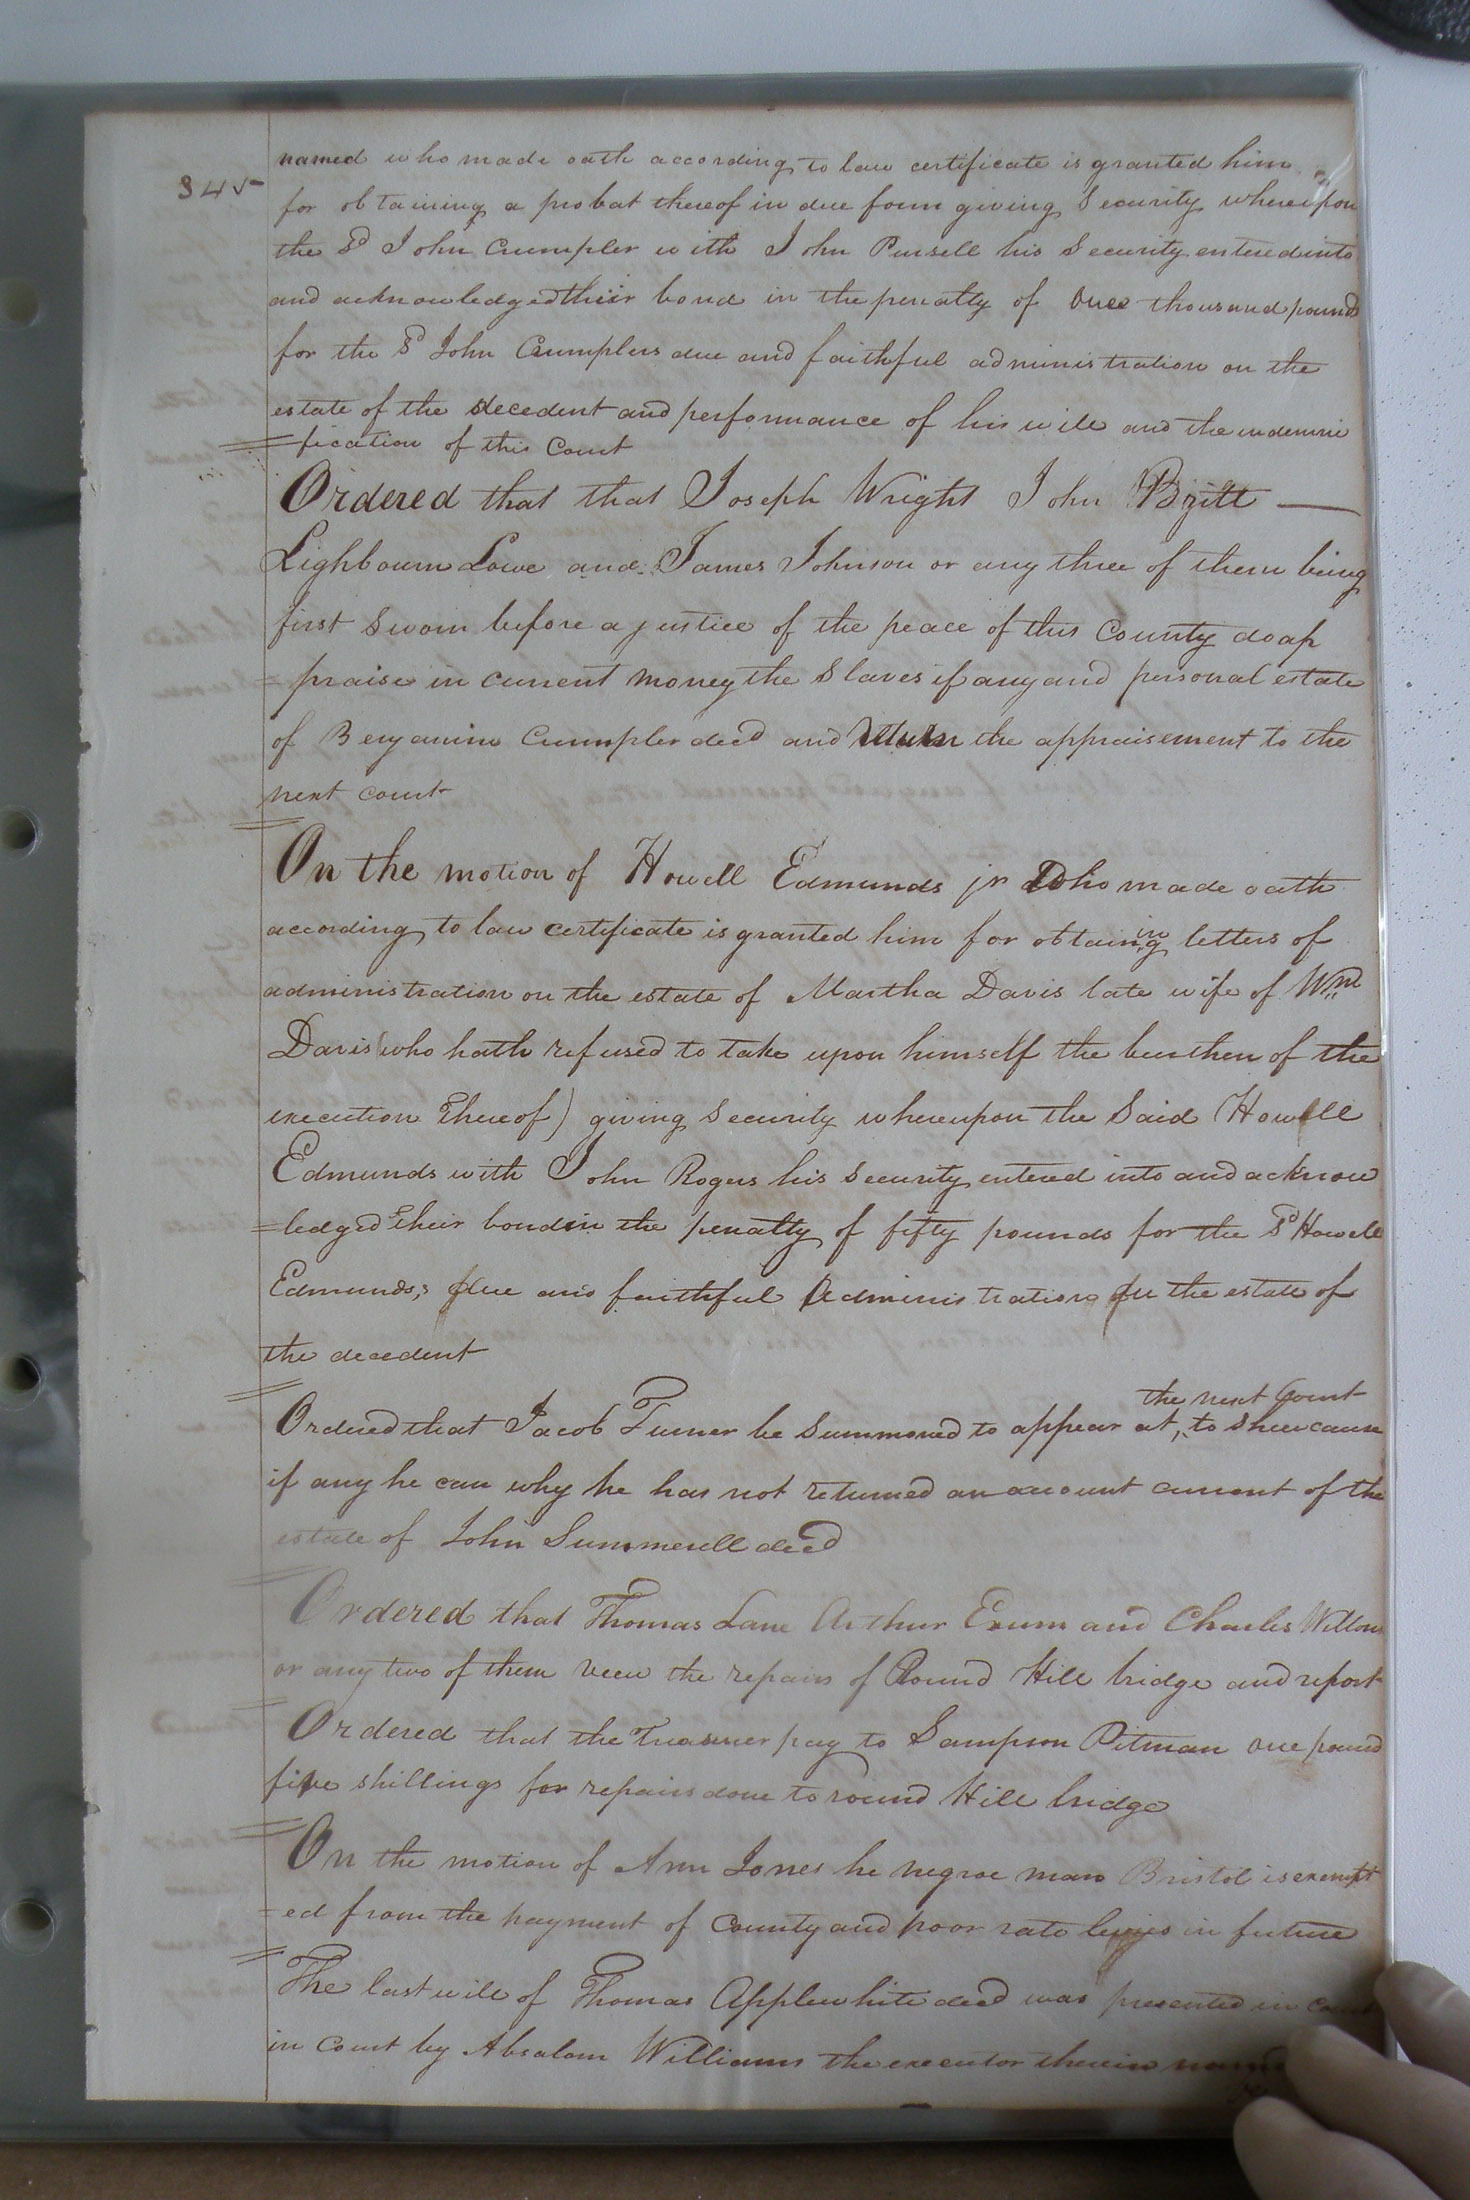 345
named who made oath according to law certificate is granted him
for obtaining a probat thereof in due form giving Security whereupon
the Sd John Crumpler with John Pursell his Security entered into
and acknowledged their bond in the penalty of one thousand pounds
for the Sd John Crumplers due and faithful administration on the
estate of the decedent and performance of his will and the indemni
=fication of this Court
Ordered that that Joseph Wright John Britt —
Lighbourn Lowe and James Johnson or any three of them being
first sworn before a justice of the peace of this County do ap
=praise in current money the Slaves if any and personal estate
of Benjamin Crumpler decd and return the appraisement to the
next court
On the motion of Howell Edmunds jr who made oath
according to law certificate is granted him for obtaining letters of
administration on the estate of Martha Davis late wife of Wm
Davis (who hath refused to take upon himself the burthen of the
execution thereof) giving Security whereupon the Said Howell
Edmunds with John Rogers his Security entered into and acknow
=ledged their bond in the penalty of fifty pounds for the Sd Howell
Edmunds,s due and faithful Administration on the estate of
the decedent
the next Court
Ordered that Jacob Turner be Summoned to appear at, to Shew cause
if any he can why he has not returned an account current of the
estate of John Summerell decd
Ordered that Thomas Lane Arthur Exum and Charles
or any two of them view the repairs of Round Hill bridge and report
Ordered that the Treasurer pay to Sampson Pitman one pound
five shillings for repairs done to round Hill bridge
On the motion of Ann Jones he negroe man Bristol is exempt
=ed from the payment of County and poor rate levies in future
The last will of Thomas Applewhite decd was presented in court
in Court by Absalom Williams the executor therein named